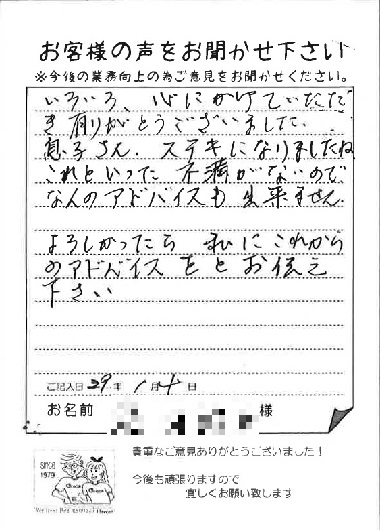 お客様の声をお聞かせ下さい
※今後の業務向上の為ご意見をお聞かせください。
いろいろ、心にかけていただ
き有りがとうございました。
息子さん、ステキになりましたね
これといった不満がないので
なんのアドバイスも出来ません
よろしかったら 私にこれから
のアドバイスをとお伝え
下さい
ご記入日 29年 1月 十日
お名前 様
貴重なご意見ありがとうございました！
SINCE
1979
今後も頑張りますので
宜しくお願い致します